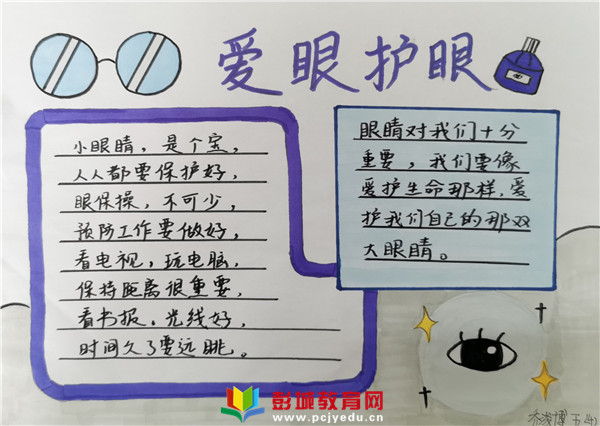 爱眼护眼
小眼睛，是个宝，
人人都要保护好，
眼保操，不可少，
预防工作要做好，
看电视，玩电脑，
保持距离很重要，
看书报。光线好，
时间久了要远眺。
眼睛对我们十分
重要，我们要像
爱护生命那样，爱
护我们自己的那双
大眼睛。
彭城教育网
www.pcjyedu.cn